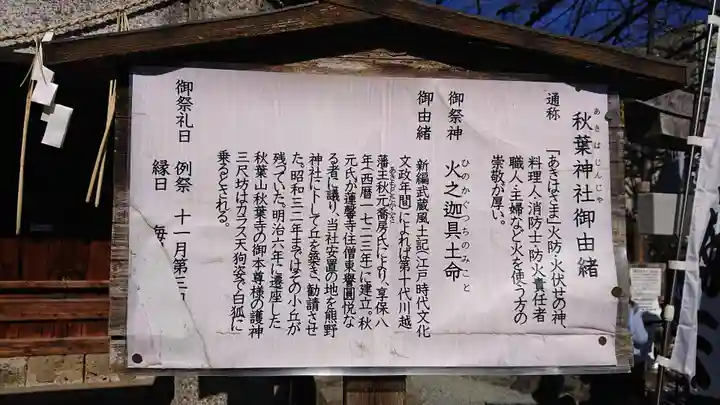 秋葉神社御由緒
あきはじんじゃ
通称 「あきはさま」火防・火伏せの神、
料理人・消防士・防火責任者
職人・主婦など火を使う方の
崇敬が厚い。
御祭神 火之迦具土命
ひのかぐつちのみこと
御由緒 新編武蔵風土記(江戸時代文化
文政年間)によれば第十代川越
藩主秋元喬房氏により、享保八
年(西暦一七二三年)に建立。秋
元氏が蓮馨寺住僧東譽圓悦な
る者に議り、当社安置の地を熊野
神社に卜して丘を築き、勧請させ
た。昭和三二年まではその小丘が
残っていた。明治六年に遷座した
秋葉山秋葉寺の御本尊様の護神
三尺坊はカラス天狗姿で白狐に
乗るとされる。
御祭礼日 例祭 十一月第三
縁日 毎